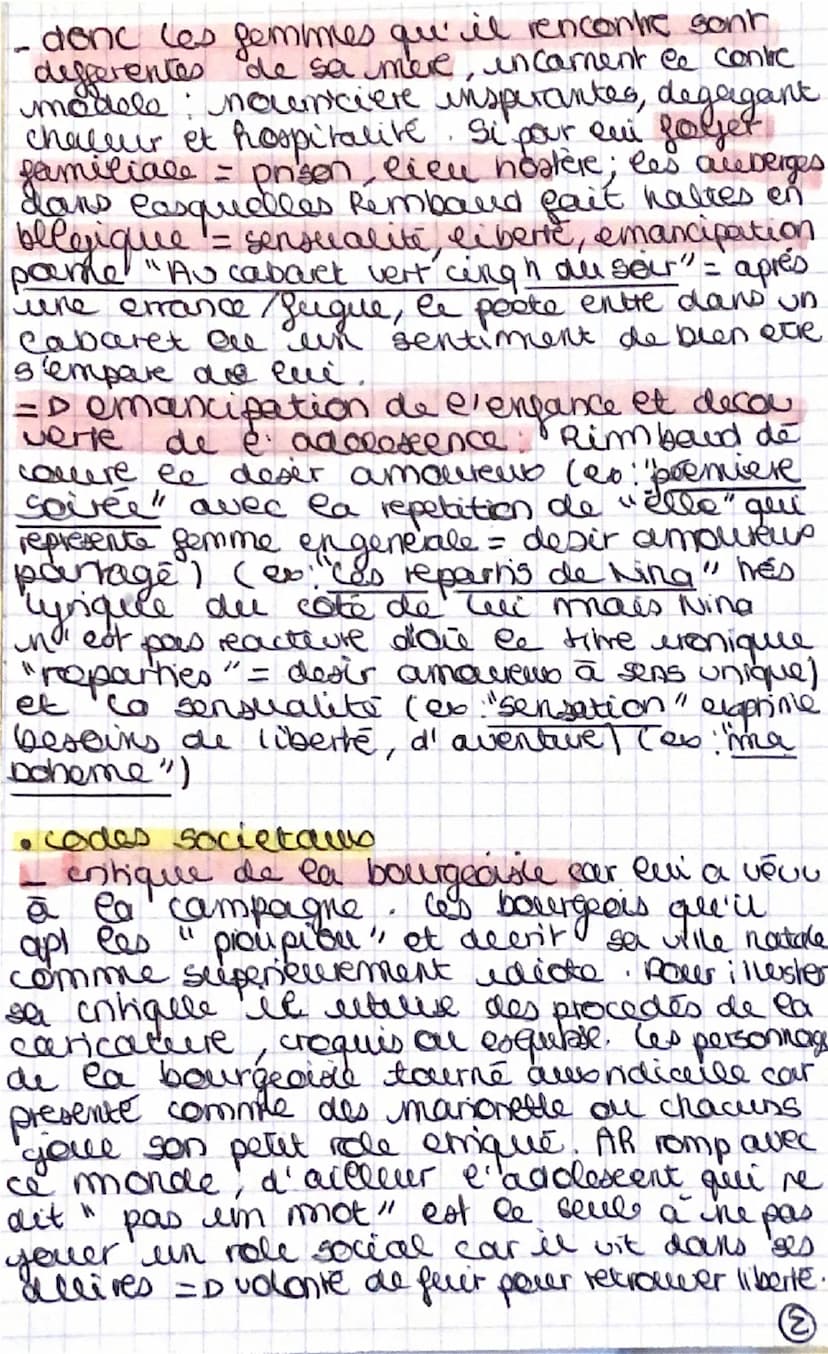 - donc les femmes qu'il rencontre sont
differentes de sa mere, incarnent le contre
modele : nourriciere inspirantes, degageant
chaleur et hospitalité. Si pour lui foyer
familiale = prison, lieu hostère ; les auberges
dans lasquelles Rimbaud fait haltes en
bllegique = sensualité, liberté, emancipation
"Au cabaret vert cinq h du soir" = après
une errance / fugue, le poete entre dans un
cabaret ou un sentiment de bien etre
s'empare de lui.
=D emancipation de l'enfance et decou
verte de l'adolescence. Rimbaud dé
couvre le desir amoureux (ex : "premiere
soirée" avec la repetition de "elle" qui
represente femme en generale = desir amoureux
partagé) (ex : "Les reparties de Nina" très
lyrique du coté de lui mais Nina
n'est pas reactive d'où le titre ironique
"reparties" = desir amoureux à sens unique)
et la sensualité (ex : "sensation" exprime
besoins de liberté, d'aventure) (ex : "ma
boheme")
• codes societaux
- critique de la bourgeoisie car lui a vécu
à la campagne. Les bourgeois qu'il
apl les "pioupiou" et decrit sa ville natale
comme superieurement idiote. Pour illustrer
sa critique il utilise des procedés de la
caricature, croquis ou esquisse. Les personnag
de la bourgeoisie tourné au ridicule car
presenté comme des marionette ou chacuns
joue son petit role etriqué. AR romp avec
ce monde, d'ailleur l'adolescent qui ne
dit "pas un mot" est le seule à ne pas
jouer un role social car il vit dans ses
=D volonté de fuir pour retrouver liberté.
2